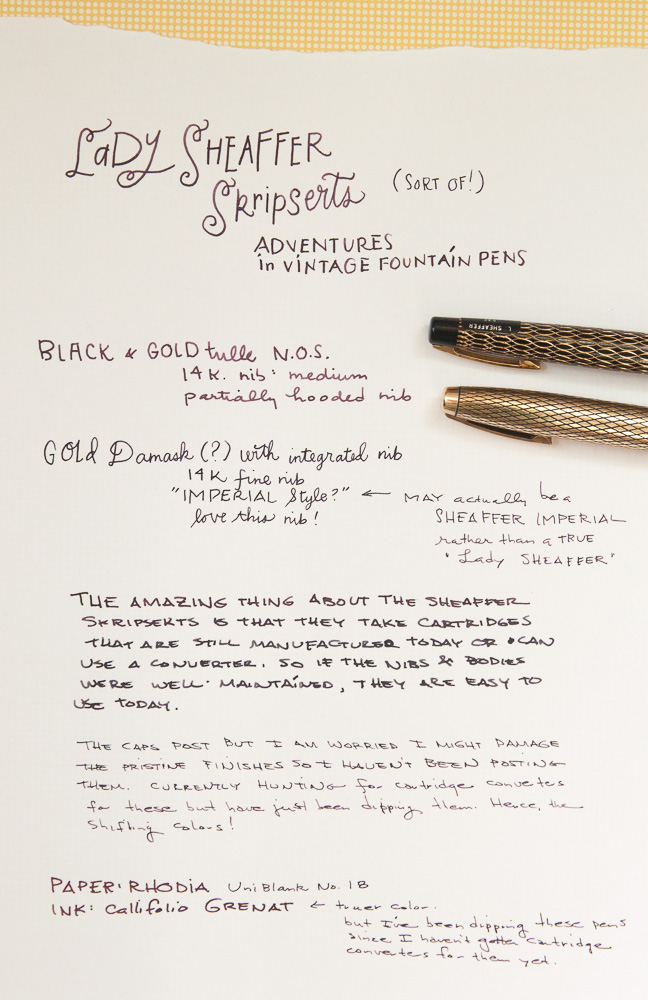 LADY SHEAFFER
Skripserts (SORT OF!)
ADVENTURES
in VINTAGE FOUNTAIN PENS
SHEAFFER
BLACK & GOLD tulle N.O.S.
14 K. nib: medium
partially hooded nib
GOLD Damask (?) with integrated nib
14 K fine nib
"IMPERIAL Style?" ← MAY actually be a
love this nib! SHEAFFER IMPERIAL
rather than a TRUE
"Lady SHEAFFER"
THE AMAZING THING ABOUT THE SHEAFFER
SKRIPSERTS IS THAT THEY TAKE CARTRIDGES
THAT ARE STILL MANUFACTURED TODAY OR CAN
USE A CONVERTER. SO IF THE NIBS & BODIES
WERE WELL MAINTAINED, THEY ARE EASY TO
USE TODAY.
THE CAPS POST BUT I AM WORRIED I MIGHT DAMAGE
THE PRISTINE FINISHES SO I HAVEN'T BEEN POSTING
THEM. CURRENTLY HUNTING for cartridge converters
for these but have just been dipping them. Hence, the
shifting colors!
PAPER: RHODIA Uni Blank No. 18
INK: Callifolio GRENAT ← truer color.
but I've been dipping these pens
since I haven't gotten cartridge
converters for them yet.